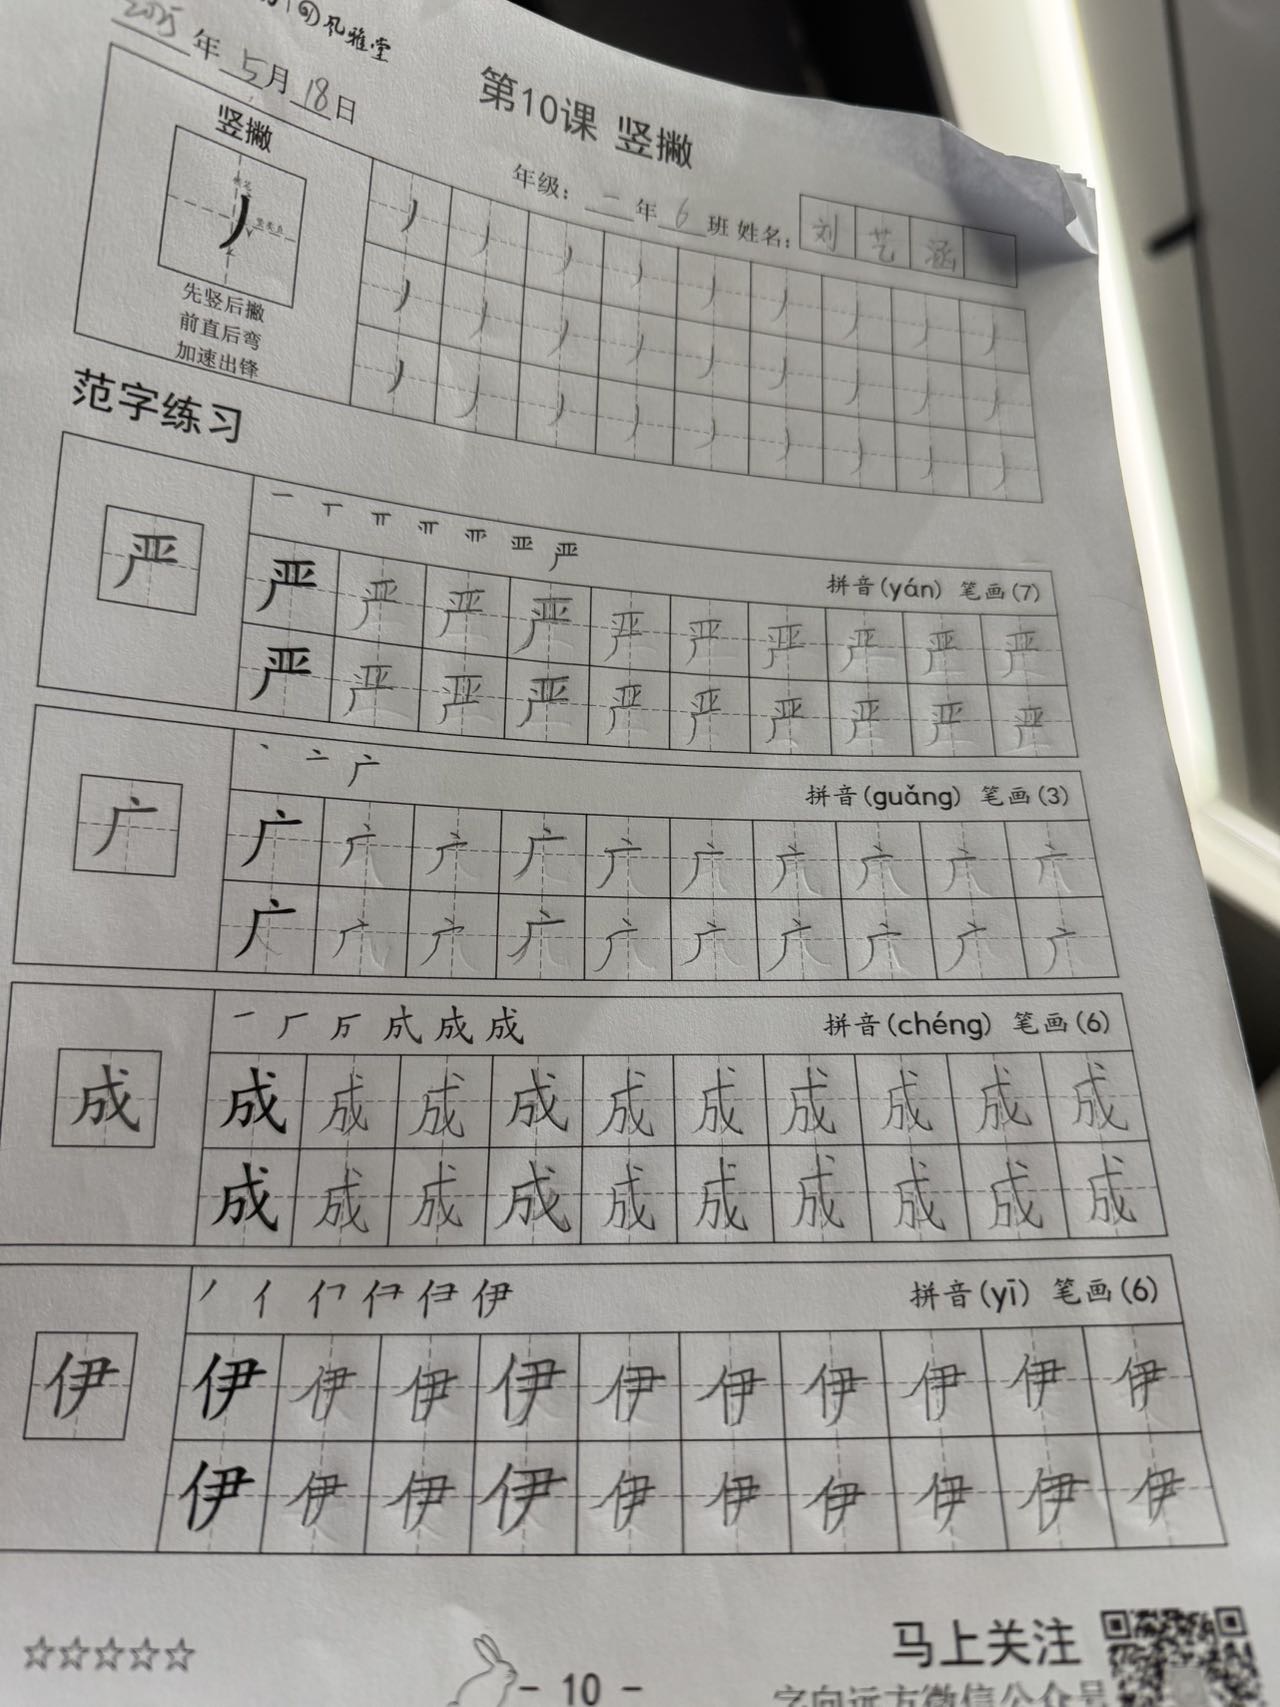 风雅堂
2025年5月18日
第10课 竖撇
年级：二年6班 姓名：刘艺涵
竖撇
先竖后撇
前直后弯
加速出锋
范字练习
严
严
拼音(yán) 笔画(7)
严 严 严 严 严 严 严 严 严 严
严 严 严 严 严 严 严 严 严 严
广
广
拼音(guǎng) 笔画(3)
广 广 广 广 广 广 广 广 广 广
广 广 广 广 广 广 广 广 广 广
成
一 厂 成 成
拼音(chéng) 笔画(6)
成 成 成 成 成 成 成 成 成 成
成 成 成 成 成 成 成 成 成 成
伊
丿 亻 伊
拼音(yī) 笔画(6)
伊 伊 伊 伊 伊 伊 伊 伊 伊 伊
伊 伊 伊 伊 伊 伊 伊 伊 伊 伊
☆☆☆☆☆
- 10 -
马上关注
字向远方微信公众号